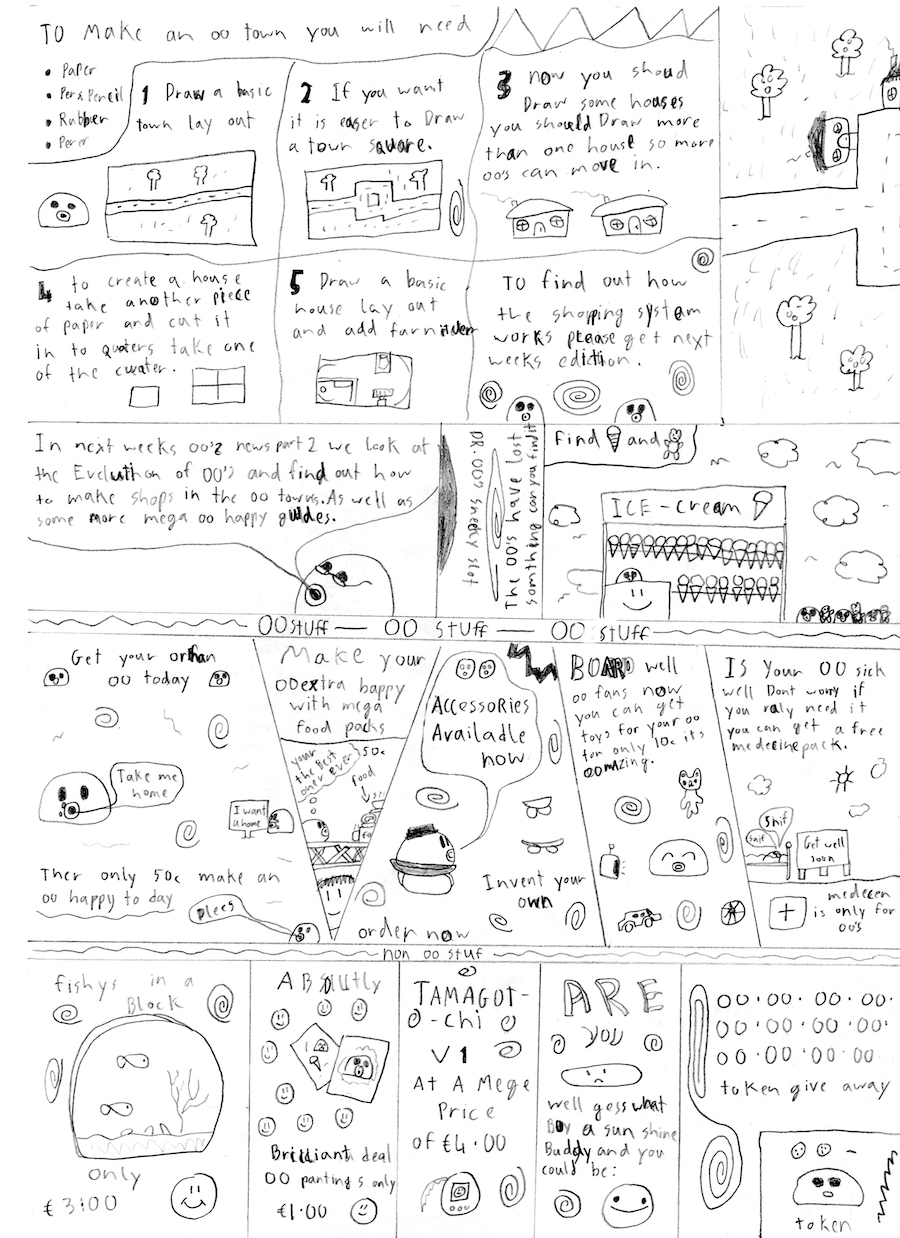 TO Make an oo town you will need
• Paper
• Pen & Pencil
• Rubber
1 Draw a basic
town lay out
2 If you want
it is easer to Draw
a town square.
3 now you shoud
Draw some houses
you should Draw more
than one house so more
oo's can move in.
4 to create a house
take another piece
of paper and cut it
in to quaters take one
of the
5 Draw a basic
house lay out
and add
TO find out how
the shopping system
works please get next
weeks edition.
In next weeks oo's news part 2 we look at
the Evoluthon of OO's and find out how
to make shops in the oo towns. As well as
some more mega oo happy guides.
DR. OO's sneeky slot
The OO's have lost
somthing can you find it
Find and
ICE-cream
OO stuff — OO stuff — OO stuff
Get your orphan
oo today
Take me
home
I want
a home
Ther only 50c make an
oo happy to day
Plees
Make your
OO extra happy
with mega
food packs
50c
your
the Best
oner ever
food
Accessories
Available
now
Invent your
own
order now
BOARD well
oo fans now
you can get
toys for your oo
for only 10c its
oomazing.
Is Your OO sick
well Dont worry if
you raly need it
you can get a free
medecine pack.
Snif
Snif
Get well
soon
medecen
is only for
oo's
non oo stuf
fishys in a
Block
only
€3:00
ABSolutly
Brilliant deal
OO pantings only
€1.00
TAMAGOT-
-chi
V1
At A Mege
Price
of €4.00
ARE
you
well gess what
Boy a sun shine
Buddy and you
could be:
OO.OO.OO.OO.
OO.OO.OO.OO.
OO.OO.OO.OO
token give away
token